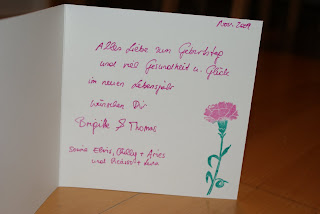 Nov. 2009
Alles Liebe zum Geburtstag
und viel Gesundheit u. Glück
im neuen Lebensjahr
wünschen Dir
Brigitte & Thomas
sowie Elvis, + Aries
und + Luna